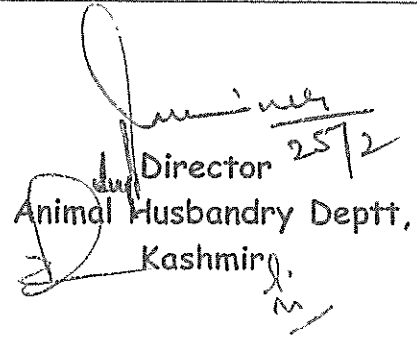 25/2
Director
Animal Husbandry Deptt,
Kashmir